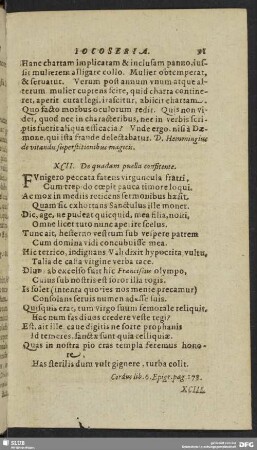 IOCOSERIA. 91
Hanc chartam implicatam & inclusam panno, iussit
mulierem alligare collo. Mulier obtemperat,
& seruatur. Verum post annum vnum atque alterum
mulier cupiens scire, quid charta contineret,
aperit cutat legi, irascitur, abiicit chartam.
Quo facto morbus oculorum redit. Quis non videt,
quod nec in characteribus, nec in verbis scriptis
fuerit aliqua efficacia? Vnde ergo, nisi à Dæmone,
qui ista fraude delectabatur. D. Hemmingius
de vitandis superstitionibus magicis.
XCII. De quadam puella confitente.
FVnigero peccata fatens virguncula fratri,
Cum trepido cœpit pauca timore loqui.
Ac mox in mediis reticens sermonibus hæsit.
Quam sic exhortans Sanctulus ille monet.
Dic, age, ne pudeat quicquid, mea filia, noiti,
Omne licet tuto nunc aperire scelus.
Tunc ait, hesterno vestrum sub vespere patrem
Cum domina vidi concubuisse mea.
Hic tetrico, indignans Validrixit hypocrita vultu,
Talia de calla virgine verba tace.
Diuus ab excelso fuit hic Franciscus olympo,
Cuius sub nostris est soror illa togis.
Is solet (intenta quoties nos mente precamur)
Consolans seruis numen adesse suis.
Quisquis erat, tum virgo suum femorale reliquit.
Hac num fas diuos credere veste tegi?
Est, ait ille, caue digitis ne forte prophanis
Id temeres, sancta sunt quia relliquiæ.
Quas in nostra pio cras templa feremus honore.
Has sterilis dum vult gignere, turba colit.
Cordus lib. 6. Epigr. pag. 178.
XCIII.